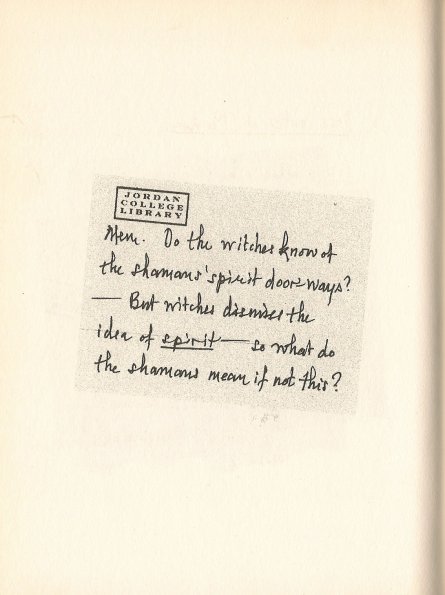 JORDAN
COLLEGE
LIBRARY
Mem. Do the witches know of
the shamans' spirit doorways?
— But witches dismiss the
idea of spirit — so what do
the shamans mean if not this?